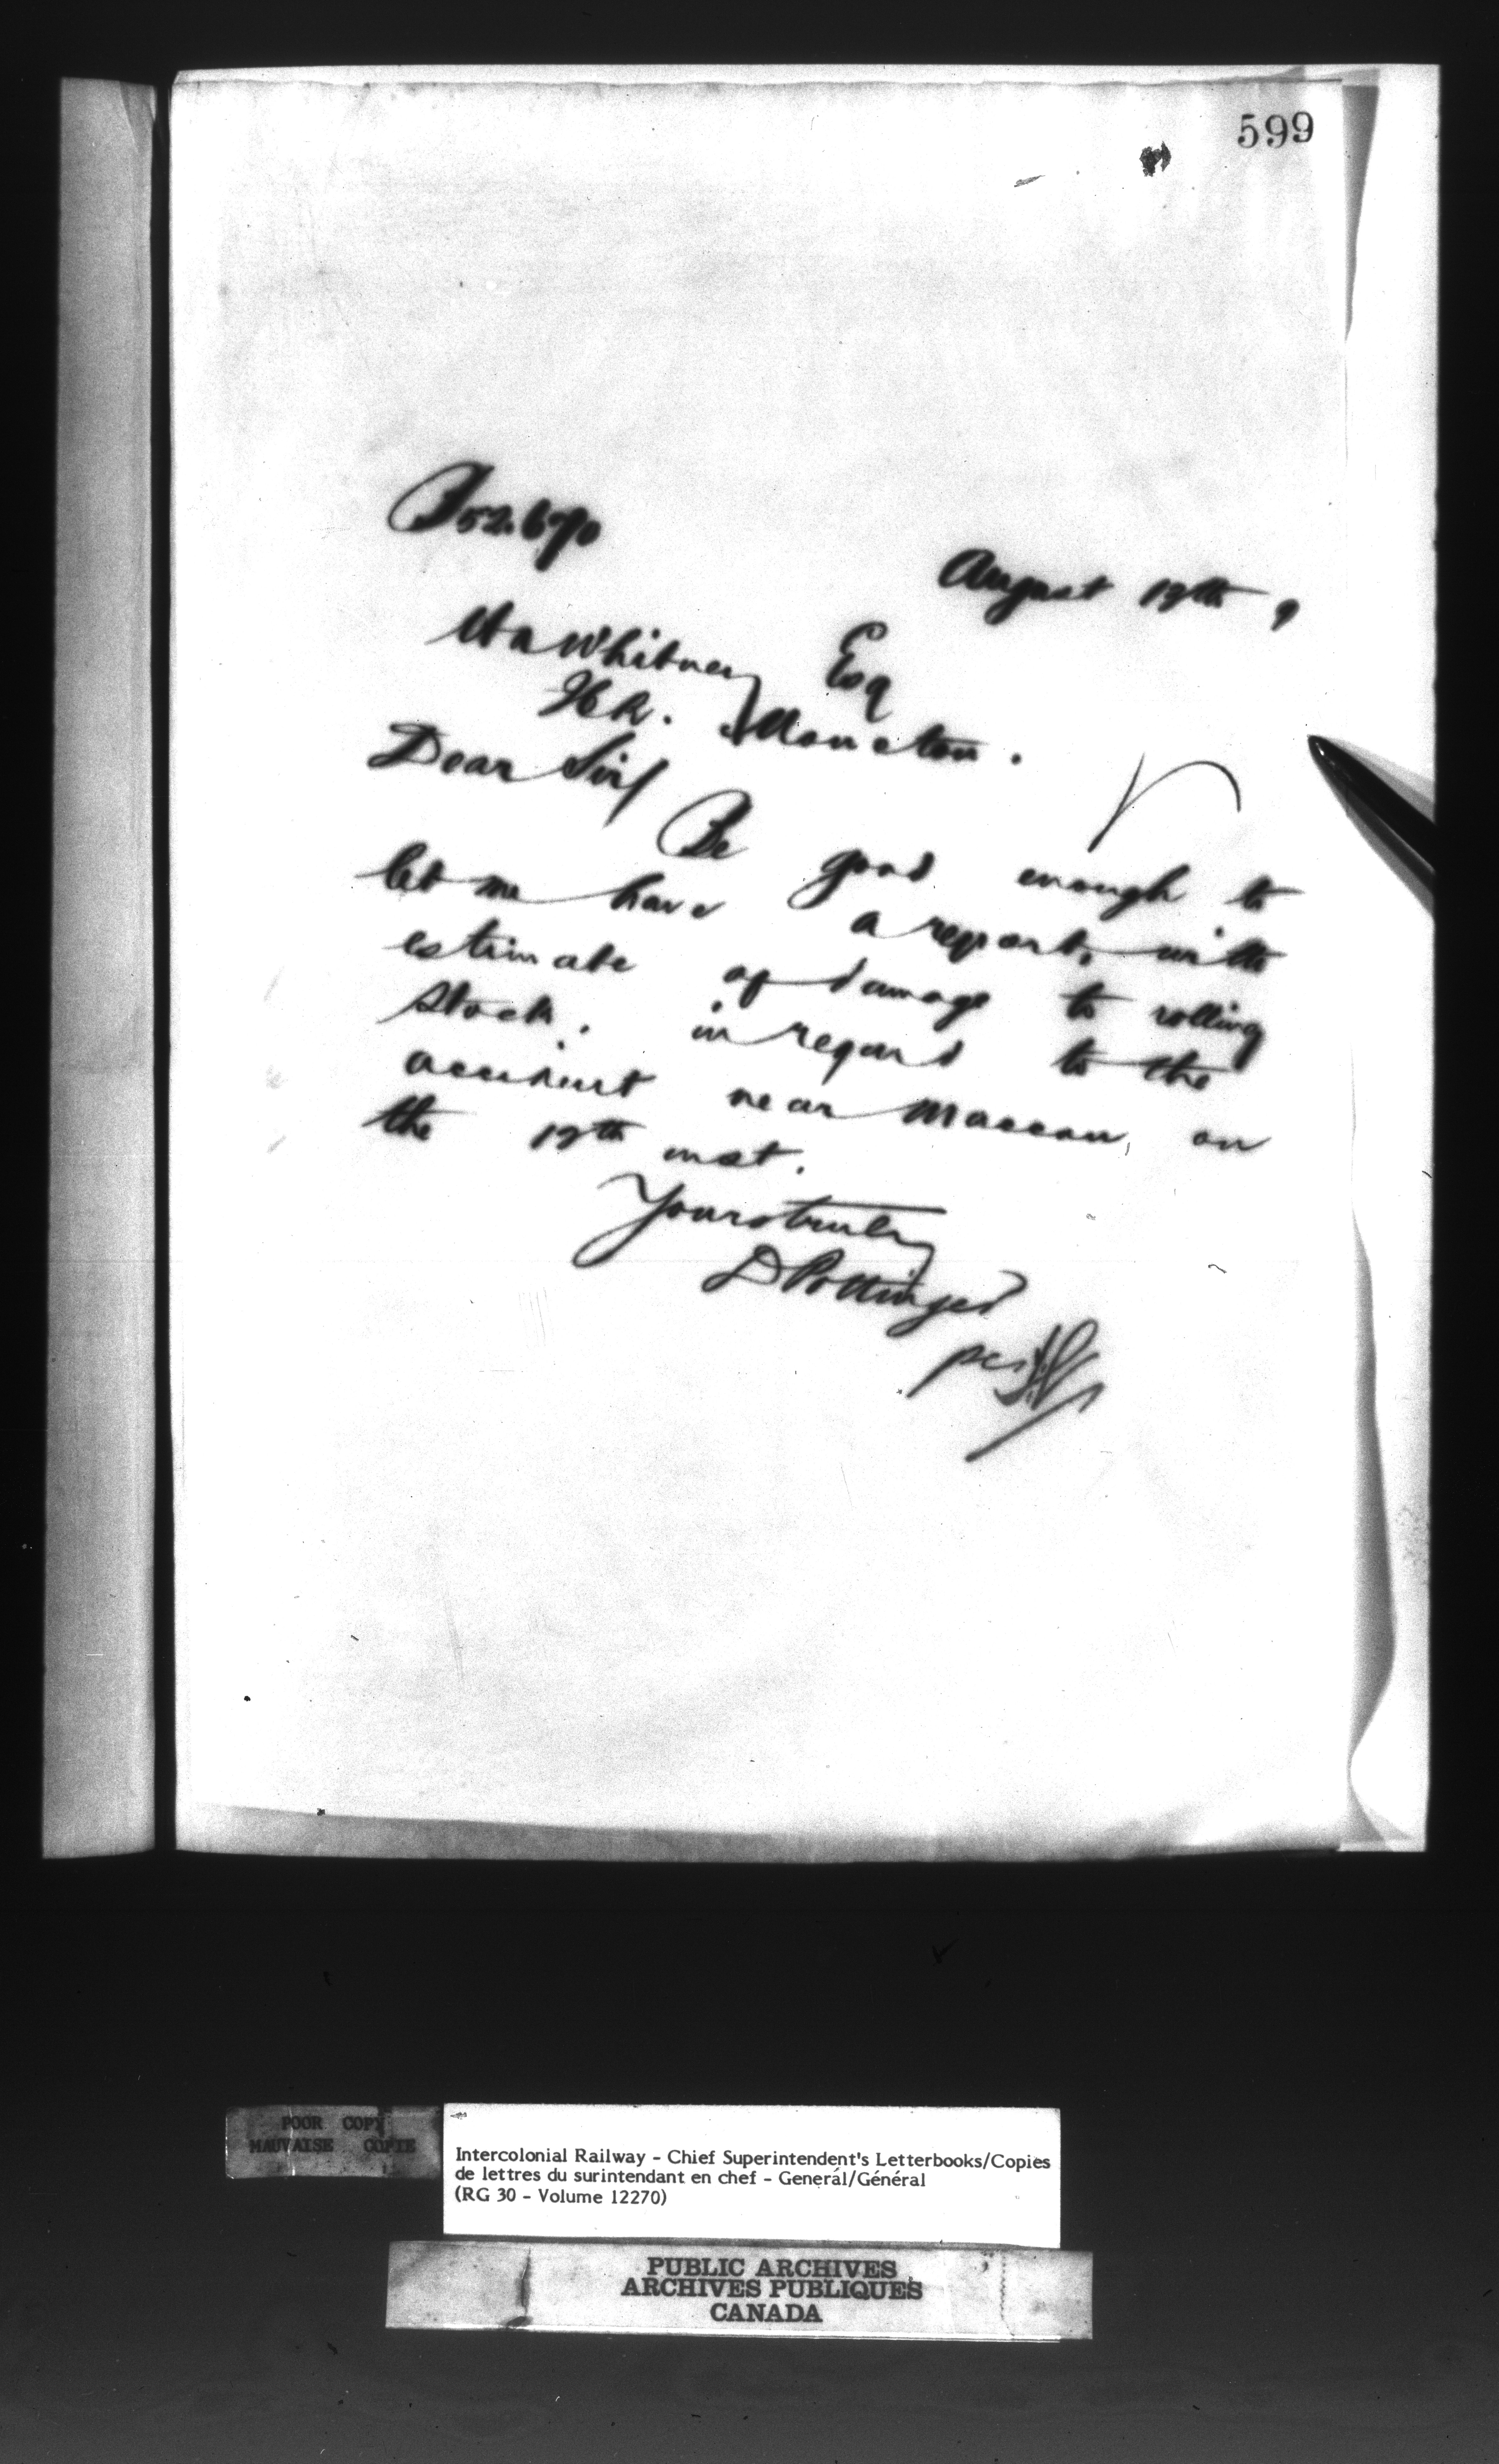 599
B 52.670
August 19th 9
H A Whitney Esq
Moncton.
Dear Sir/
Be good enough to
let me have a report, with
estimate of damage to rolling
stock. in regard to the
accident near Maccan, on
the 19th inst.
Yours truly
D Pottinger
per
POOR COPY
MAUVAISE COPIE
Intercolonial Railway - Chief Superintendent's Letterbooks/Copies
de lettres du surintendant en chef - General/Général
(RG 30 - Volume 12270)
PUBLIC ARCHIVES
ARCHIVES PUBLIQUES
CANADA